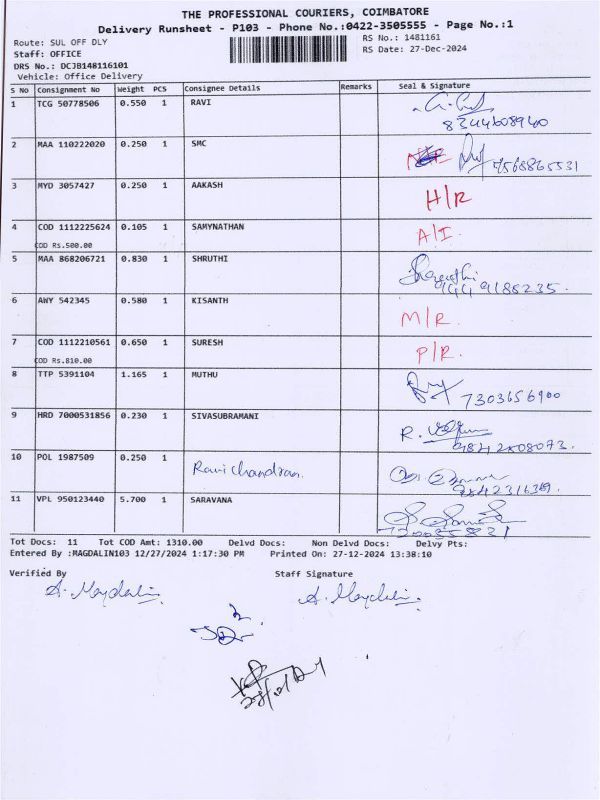 THE PROFESSIONAL COURIERS, COIMBATORE
Delivery Runsheet - P103 - Phone No.:0422-3505555 - Page No.:1
Route: SUL OFF DLY
RS No.: 1481161
Staff: OFFICE
RS Date: 27-Dec-2024
DRS No.: DCJB148116101
Vehicle: Office Delivery
S No Consignment No Weight PCS Consignee Details Remarks Seal & Signature
1 TCG 50778506 0.550 1 RAVI
8344608940
2 MAA 110222020 0.250 1 SMC
9568865531
3 MYD 3057427 0.250 1 AAKASH H/R
4 COD 1112225624 0.105 1 SAMYNATHAN A/I.
COD Rs.500.00
5 MAA 868206721 0.830 1 SHRUTHI
9444 9188235.
6 AWY 542345 0.580 1 KISANTH M/R.
7 COD 1112210561 0.650 1 SURESH P/R.
COD Rs.810.00
8 TTP 5391104 1.165 1 MUTHU
7303656900
9 HRD 7000531856 0.230 1 SIVASUBRAMANI R.
9842508073.
10 POL 1987509 0.250 1 Ravichandran.
11 VPL 950123440 5.700 1 SARAVANA
Tot Docs: 11 Tot COD Amt: 1310.00 Delvd Docs: Non Delvd Docs: Delvy Pts:
Entered By :MAGDALIN103 12/27/2024 1:17:30 PM Printed On: 27-12-2024 13:38:10
Verified By Staff Signature
A. Magdalin A. Magdalin